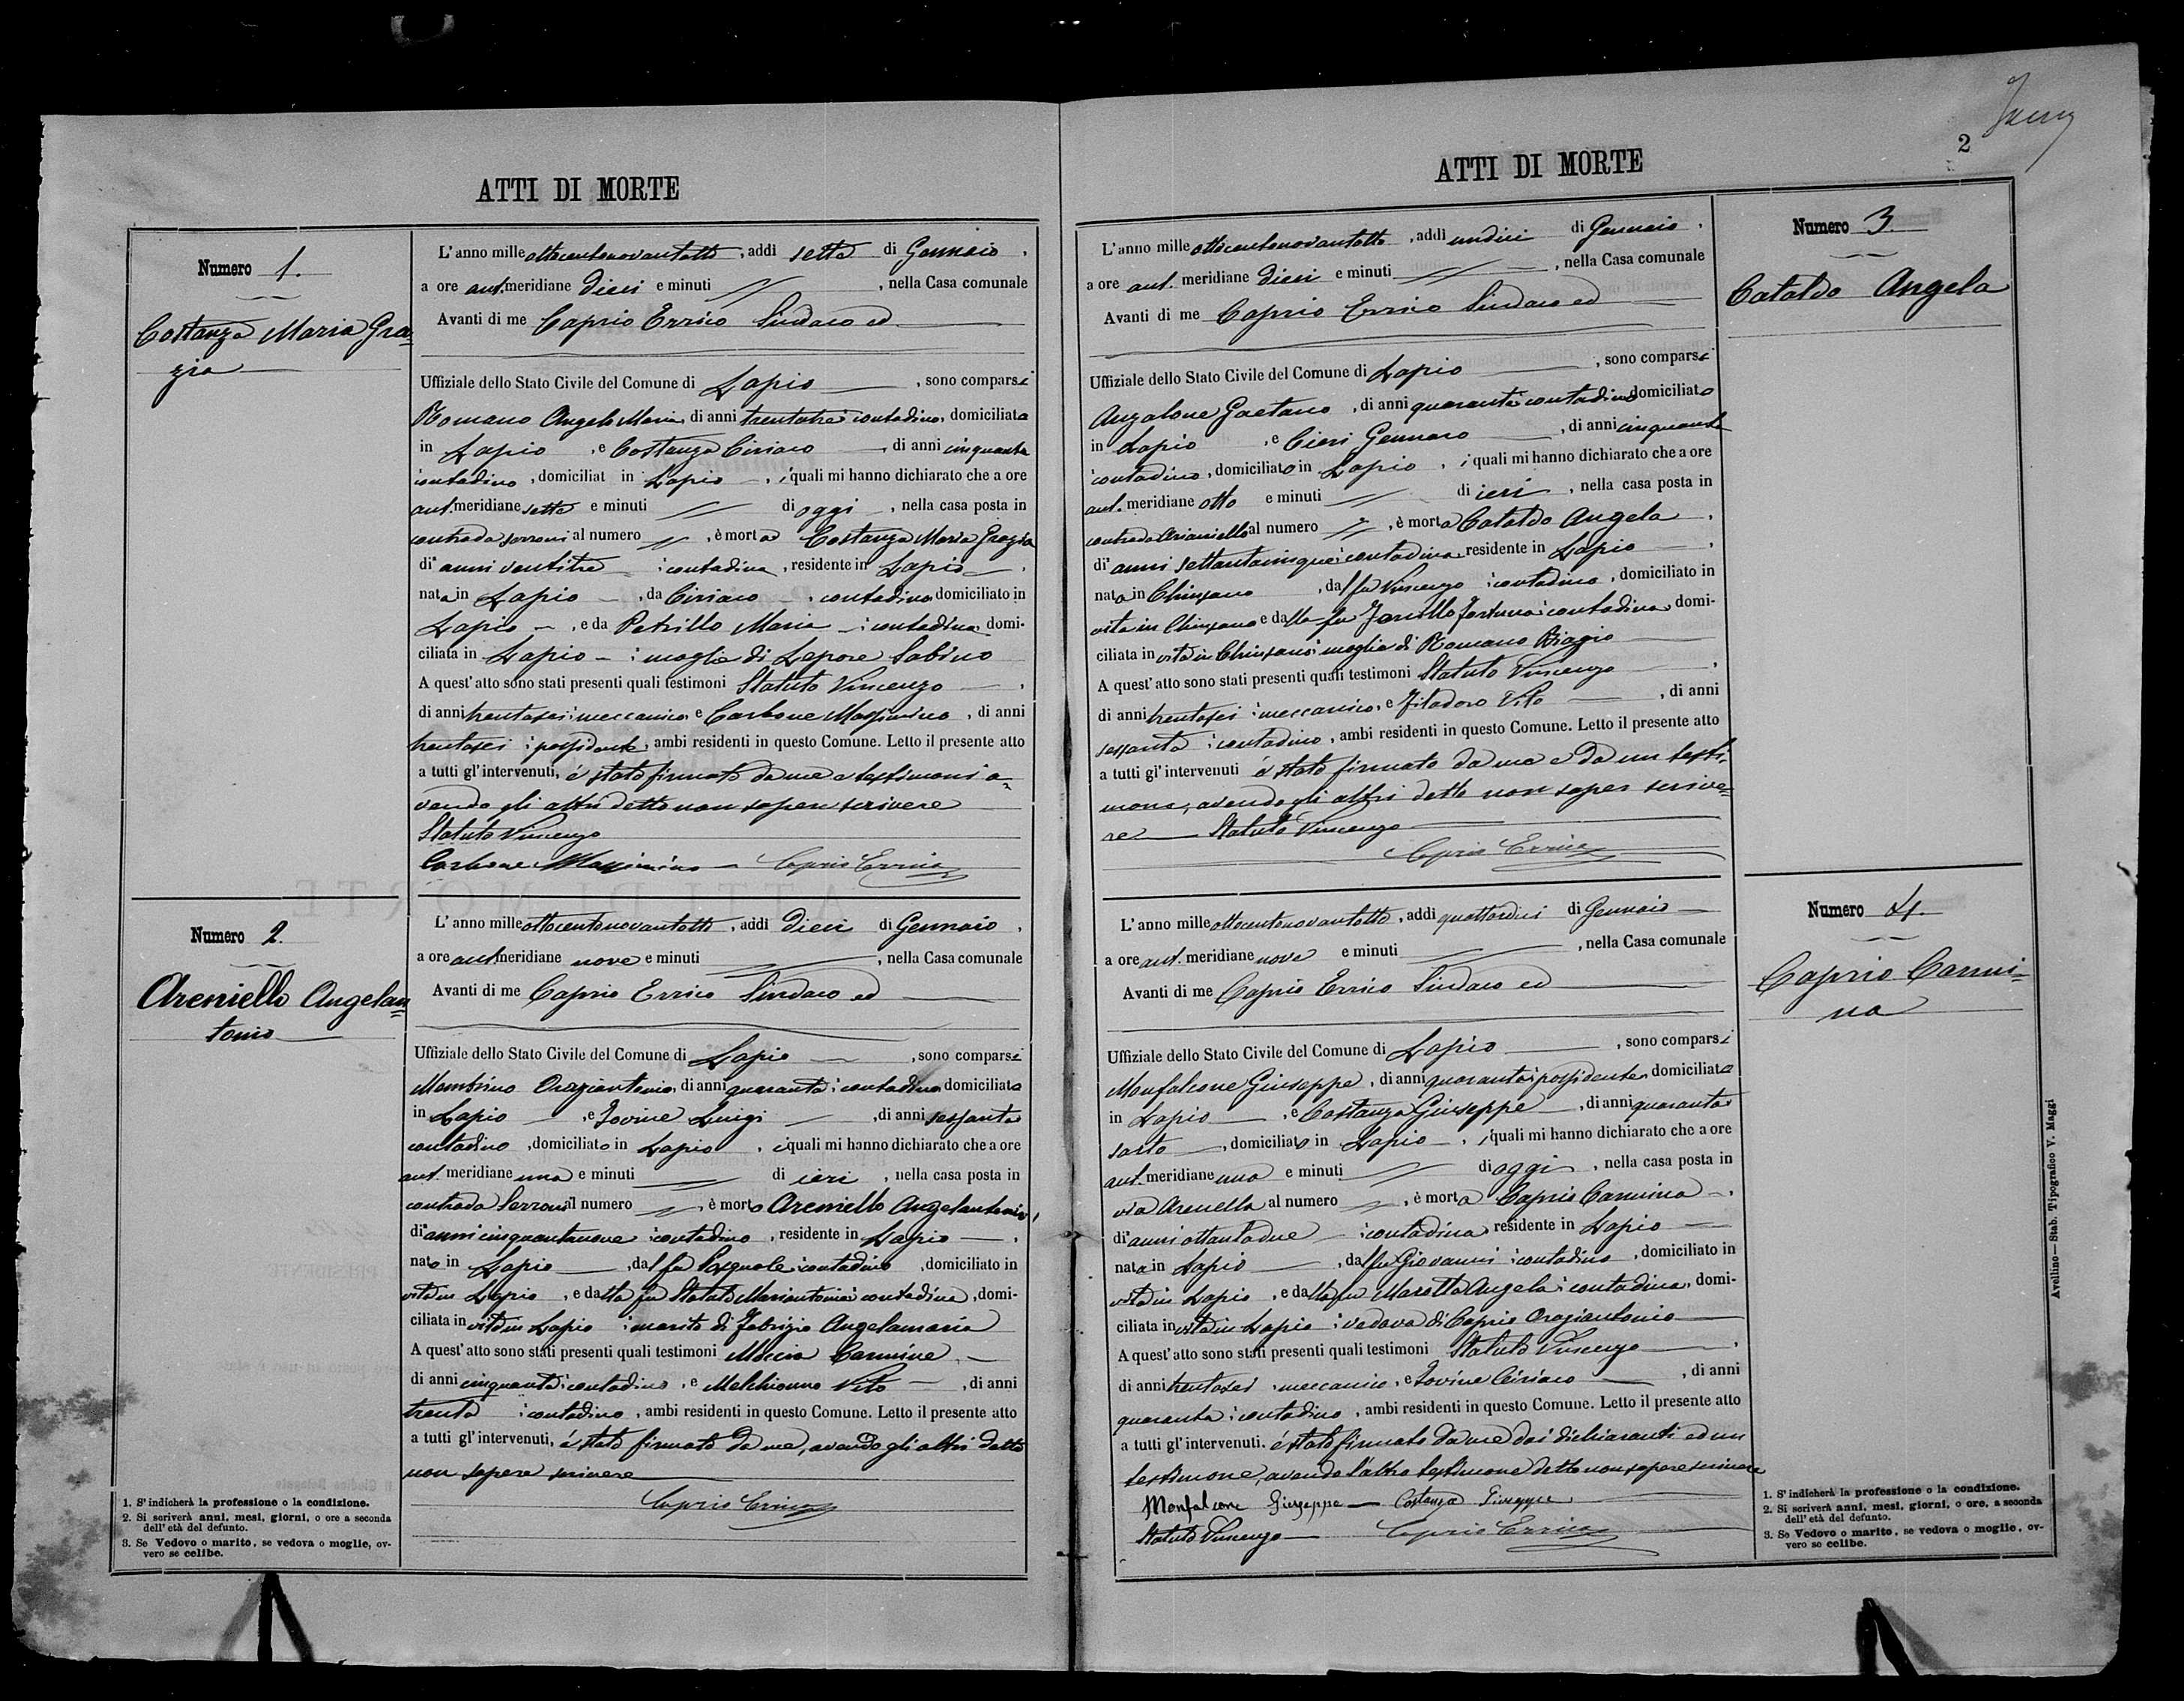 ATTI DI MORTE
Numero 1.
Costanza Maria Gra=
zia
L'anno mille ottocentonovantotto, addì sette di Gennaio,
a ore ant. meridiane dieci e minuti , nella Casa comunale
Avanti di me Caprio Errico Sindaco ed
Uffiziale dello Stato Civile del Comune di Lapio , sono comparsi
Romano Angelo Maria, di anni trentatre, contadino, domiciliato
in Lapio , e Costanza Ciriaco , di anni cinquanta
contadino, domiciliat in Lapio , i quali mi hanno dichiarato che a ore
ant. meridiane sette e minuti di oggi , nella casa posta in
contrada serroni al numero , è morta Costanza Maria Grazia
di anni ventitre contadina, residente in Lapio ,
nata in Lapio , da Ciriaco , contadino domiciliato in
Lapio , e da Petrillo Maria , contadina domi-
ciliata in Lapio moglie di Lepore Sabino
A quest'atto sono stati presenti quali testimoni Statuto Vincenzo ,
di anni trentasei, meccanico, e Carbone Massimino, di anni
trentasei, possidente, ambi residenti in questo Comune. Letto il presente atto
a tutti gl'intervenuti, è stato firmato da me e testimoni a=
vendo gli altri detto non sapere scrivere
Statuto Vincenzo
Carbone Massimino Caprio Errico
Numero 2.
Areniello Angelan=
tonio
L'anno mille ottocentonovantotto, addì dieci di Gennaio,
a ore ant. meridiane nove e minuti , nella Casa comunale
Avanti di me Caprio Errico Sindaco ed
Uffiziale dello Stato Civile del Comune di Lapio , sono comparsi
Mambrino Oraziantonio, di anni quaranta, contadino domiciliato
in Lapio , e Iovine Luigi , di anni sessanta
contadino , domiciliato in Lapio , i quali mi hanno dichiarato che a ore
ant. meridiane una e minuti di ieri , nella casa posta in
contrada Serroni al numero , è morto Areniello Angelantonio,
di anni cinquantanove contadino , residente in Lapio ,
nato in Lapio , dal fu Pasquale, contadino , domiciliato in
vita in Lapio , e dalla fu Statuto Mariantonia, contadina, domi-
ciliata in vita in Lapio marito di Fabrizio Angelamaria
A quest'atto sono stati presenti quali testimoni Moccia Carmine,
di anni cinquanta, contadino , e Melchionno Vito , di anni
trenta , contadino , ambi residenti in questo Comune. Letto il presente atto
a tutti gl'intervenuti, è stato firmato da me, avendo gli altri detto
non sapere scrivere
Caprio Errico
1. S'indicherà la professione o la condizione.
2. Si scriverà anni, mesi, giorni, o ore a seconda
dell'età del defunto.
3. Se Vedovo o marito, se vedova o moglie, ov-
vero se celibe.
2
ATTI DI MORTE
L'anno mille ottocentonovantotto, addì undici di Gennaio,
a ore ant. meridiane dieci e minuti , nella Casa comunale
Avanti di me Caprio Errico Sindaco ed
Uffiziale dello Stato Civile del Comune di Lapio , sono comparsi
Anzalone Gaetano , di anni quaranta contadino domiciliato
in Lapio , e Cieri Gennaro , di anni cinquanta
contadino , domiciliato in Lapio , i quali mi hanno dichiarato che a ore
ant. meridiane otto e minuti di ieri , nella casa posta in
contrada Arianiello al numero , è morta Cataldo Angela ,
di anni settantacinque contadina residente in Lapio ,
nata in Chiusano , dal fu Vincenzo contadino , domiciliato in
vita in Chiusano e dalla fu Fortuna contadina domi-
ciliata in vita in Chiusano moglie di Romano Biagio
A quest'atto sono stati presenti quali testimoni Statuto Vincenzo ,
di anni trentasei meccanico, e Filadoro Vito , di anni
sessanta , contadino , ambi residenti in questo Comune. Letto il presente atto
a tutti gl'intervenuti è stato firmato da me e da un testi=
mone, avendo gli altri detto non saper scrive=
re Statuto Vincenzo
Caprio Errico
Numero 3.
Cataldo Angela
L'anno mille ottocentonovantotto, addì quattordici di Gennaio
a ore ant. meridiane nove e minuti , nella Casa comunale
Avanti di me Caprio Errico Sindaco ed
Uffiziale dello Stato Civile del Comune di Lapio , sono comparsi
Monfalcone Giuseppe, di anni quaranta, possidente, domiciliato
in Lapio , e Costanza Giuseppe , di anni quaranta
sarto , domiciliato in Lapio , i quali mi hanno dichiarato che a ore
ant. meridiane una e minuti di oggi , nella casa posta in
via Arenella al numero , è morta Caprio Carmina ,
di anni ottantadue contadina residente in Lapio
nata in Lapio , dal fu Giovanni contadino , domiciliato in
vita in Lapio , e dalla fu Marotta Angela, contadina, domi-
ciliata in vita in Lapio vedova di Caprio Oraziantonio
A quest'atto sono stati presenti quali testimoni Statuto Vincenzo ,
di anni trentasei , meccanico, e Iovine Ciriaco , di anni
quaranta , contadino , ambi residenti in questo Comune. Letto il presente atto
a tutti gl'intervenuti. è stato firmato da me dai dichiaranti ed un
testimone, avendo l'altro testimone detto non sapere scrivere
Monfalcone Giuseppe Costanza Giuseppe
Statuto Vincenzo Caprio Errico
Numero 4.
Caprio Carmi=
na
1. S'indicherà la professione o la condizione.
2. Si scriverà anni, mesi, giorni, o ore, a seconda
dell'età del defunto.
3. Se Vedovo o marito, se vedova o moglie, ov-
vero se celibe.
Avellino—Stab. Tipografico V. Maggi